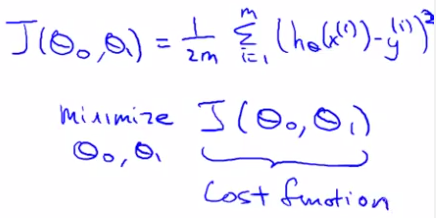 J(θ₀,θ₁) = 1/2m Σᵢ₌₁ᵐ (h_θ(x⁽ⁱ⁾)-y⁽ⁱ⁾)²
minimize J(θ₀,θ₁)
θ₀,θ₁
Cost function